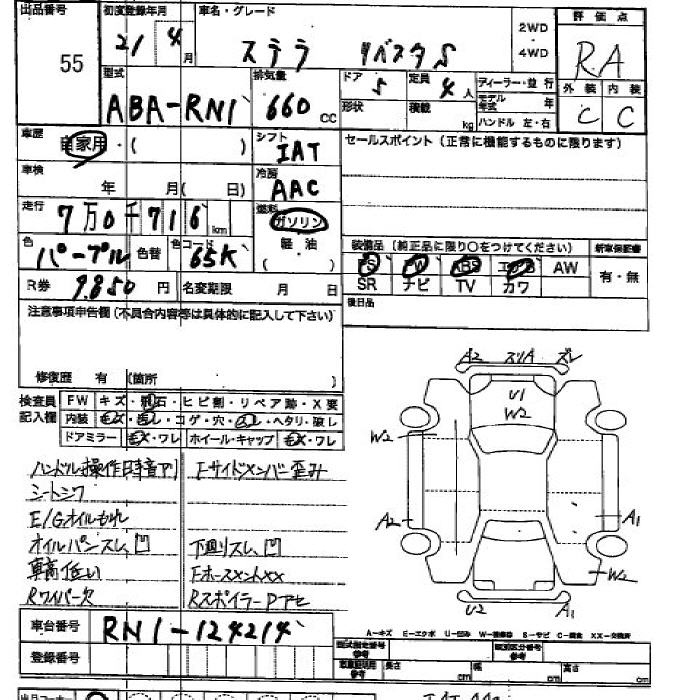 出品番号 55
初度登録年月 21 4月
車名・グレード ステラ リバスタS
2WD
4WD
評価点 RA
外装 内装
C C
型式 ABA-RN1
排気量 660 CC
ドア 5 定員 4人
形状 積載 kg
ディーラー・並行
モデル年式 年
ハンドル 左・右
車歴 自家用・( )
シフト IAT
セールスポイント(正常に機能するものに限ります)
車検 年 月( 日)
冷房 AAC
走行 7万0千716 km
燃料 ガソリン
軽油
( )
色 パープル 色替 色コード 65K
装備品(純正品に限り○をつけてください) 新車保証書
PS PW ABS エアB AW 有・無
SR ナビ TV カワ
R券 9850円 名変期限 月 日
後日品
注意事項申告欄(不具合内容等は具体的に記入して下さい)
修復歴 有 (箇所
検査員記入欄
FW キズ・飛石・ヒビ割・リペア跡・X要
内装 コゲ・穴・ ・ヘタリ・破レ
ドアミラー キズ・ワレ ホイール・キャップ キズ・ワレ
ハンドル操作時異音アリ Fサイドメンバー歪み
シートシワ
E/Gオイルもれ
オイルパンスレ、凹 下廻リスレ、凹
車高低い
Rワイパー欠 RスポイラーPアセ
車台番号 RN1-124214
登録番号
A2 スリA ズレ
U1
W2
W2
A2
A1
W2
U2 A1
A-キズ E-エクボ U-凹み W-補修跡 S-サビ C-腐食 XX-交換済
型式指定番号 参考
類別区分番号 参考
長さ cm 幅 cm 高さ cm